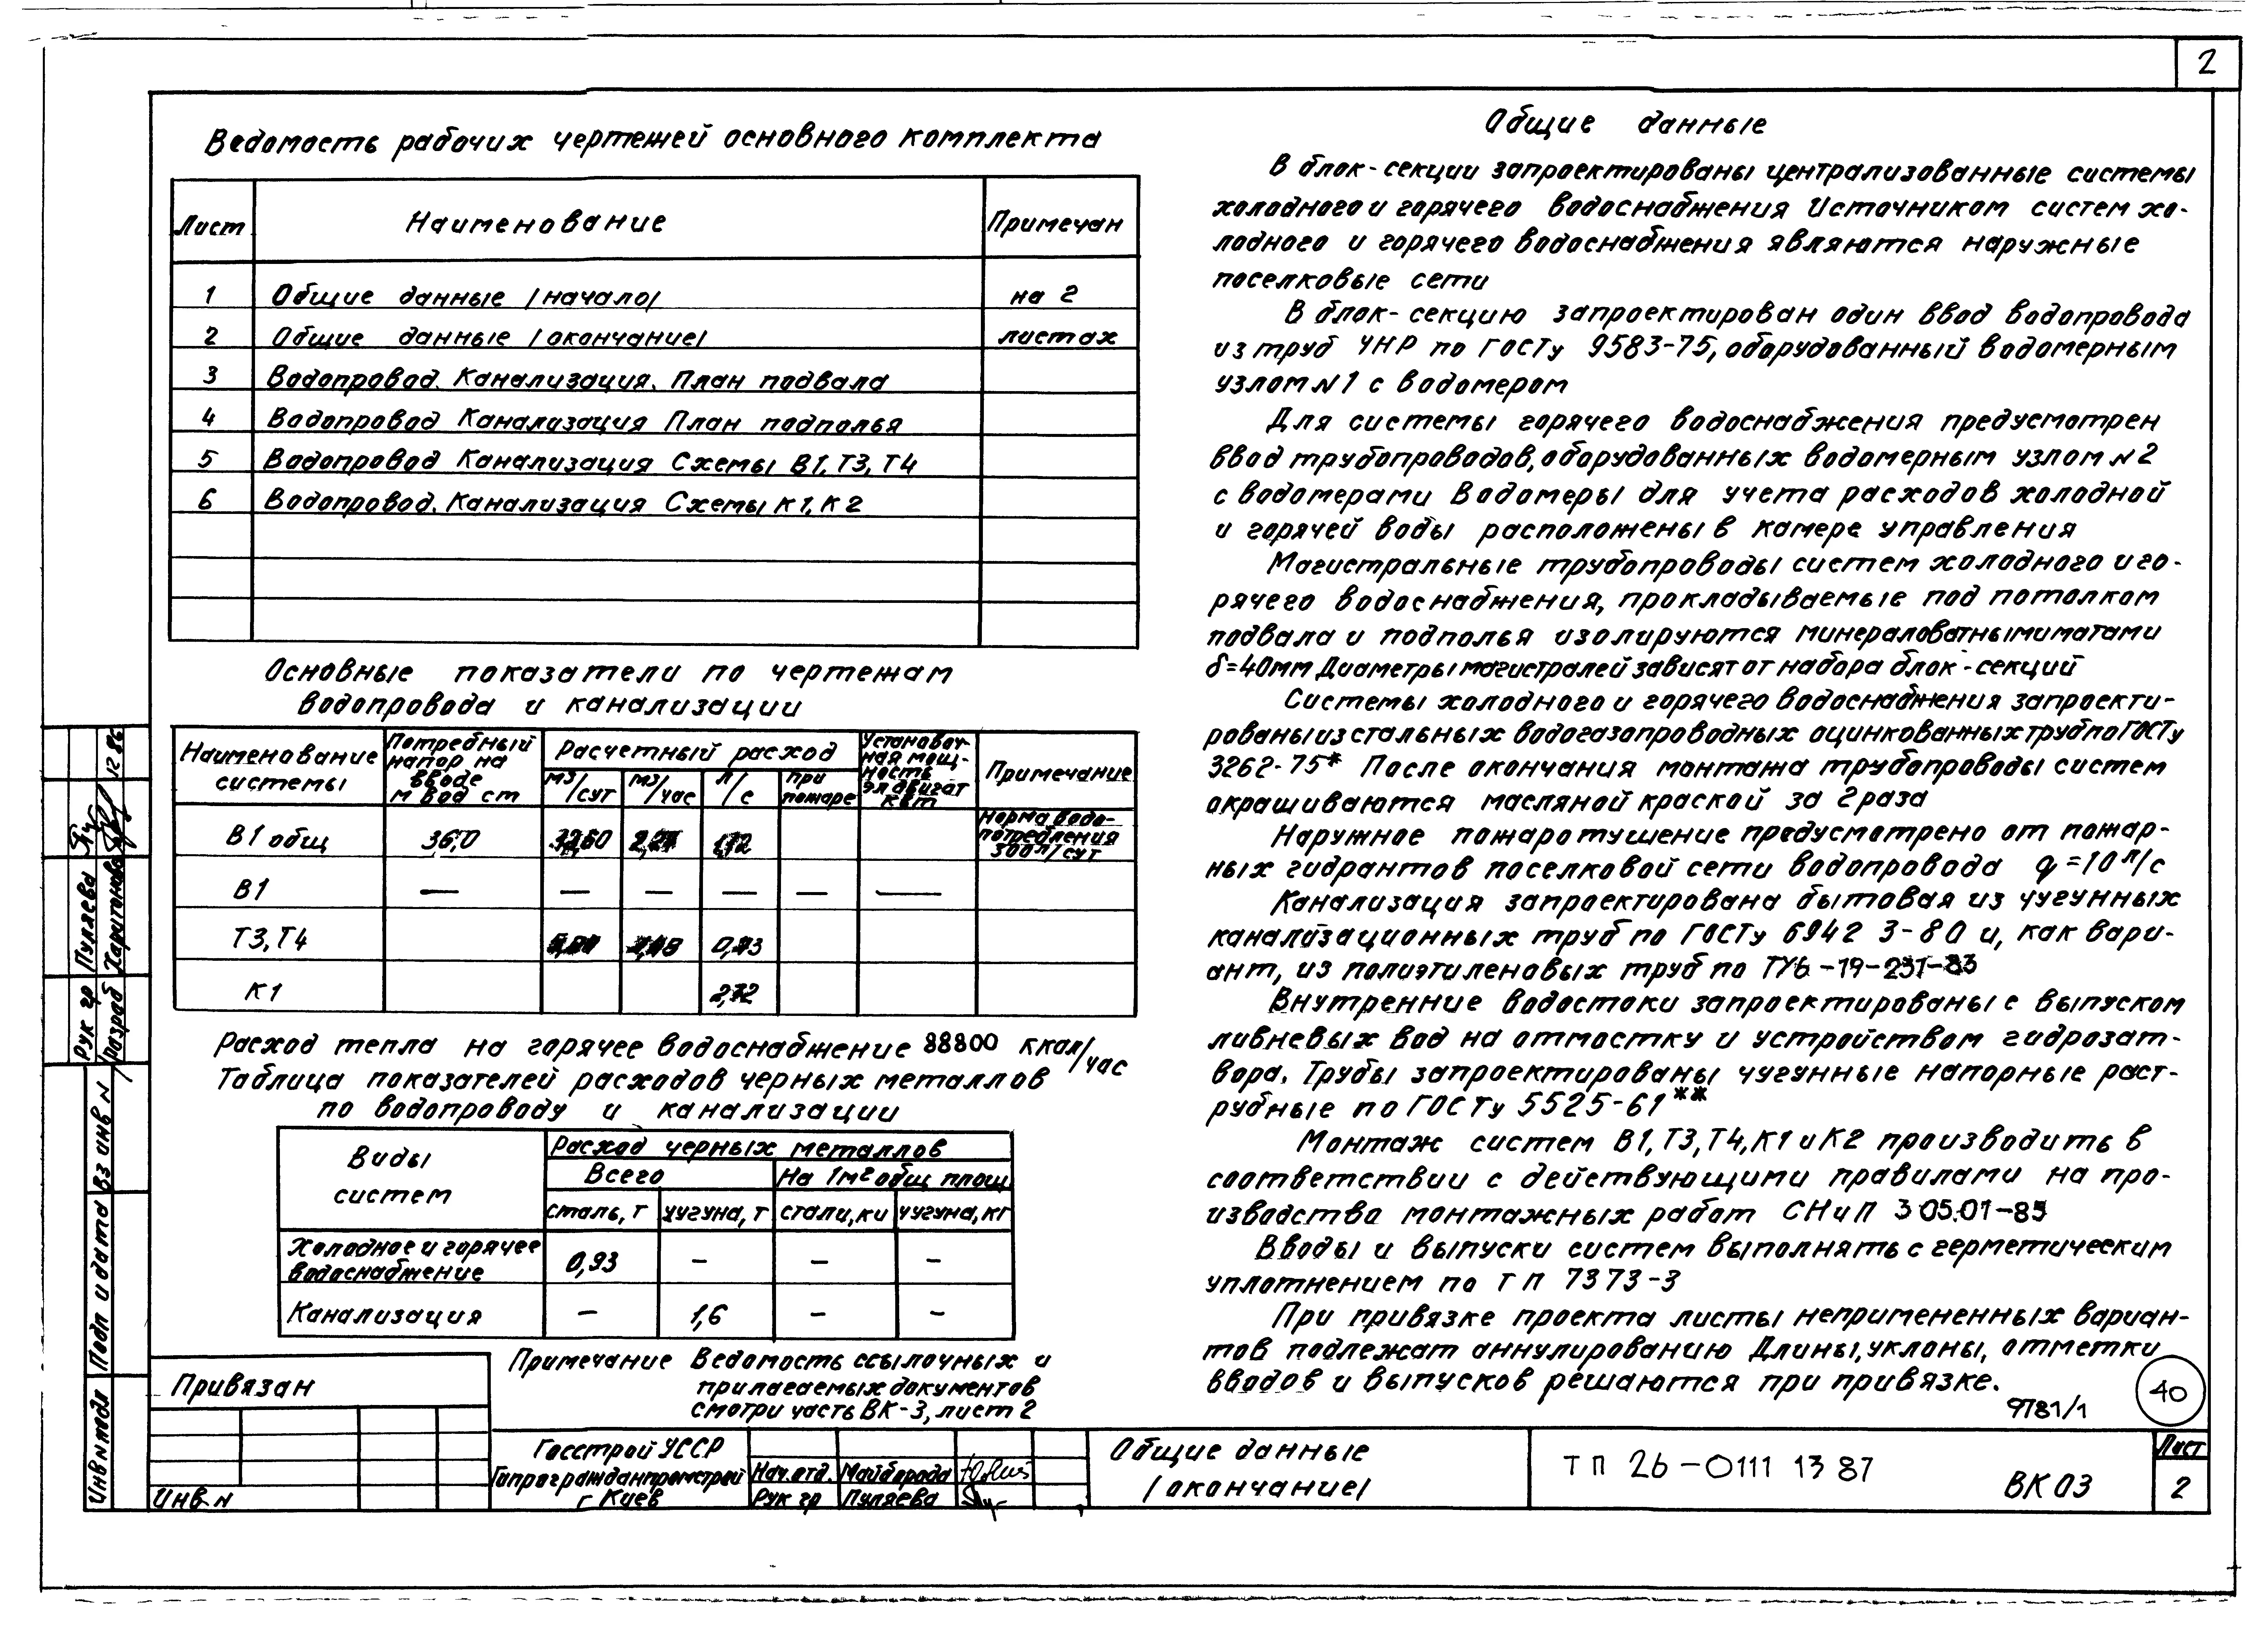 2
Ведомость рабочих чертежей основного комплекта
Лист Наименование Примечан
1 Общие данные /начало/ на 2
2 Общие данные /окончание/ листах
3 Водопровод. Канализация. План подвала
4 Водопровод Канализация План подполья
5 Водопровод Канализация Схемы В1, Т3, Т4
6 Водопровод. Канализация Схемы К1, К2
Основные показатели по чертежам
водопровода и канализации
Наименование системы
Потребный напор на вводе м вод ст
Расчетный расход
м3/сут м3/час л/с при пожаре
Установочная мощность эл двигат квт
Примечание
В1 общ 36,0
Норма водо-
потребления
300л/сут
В1 — — — — — —
Т3, Т4
К1
Расход тепла на горячее водоснабжение 88800 ккал/час
Таблица показателей расходов черных металлов
по водопроводу и канализации
Виды систем
Расход черных металлов
Всего На 1м² общ площ
сталь, т чугуна, т стали, ки чугуна, кг
Холодное и горячее
водоснабжение 0,93 – – –
Канализация – 1,6 – –
Примечание Ведомость ссылочных и
прилагаемых документов
смотри часть ВК-3, лист 2
Общие данные
В блок-секции запроектированы централизованные системы
холодного и горячего водоснабжения Источником систем хо-
лодного и горячего водоснабжения являются наружные
поселковые сети
В блок-секцию запроектирован один ввод водопровода
из труб ЧНР по ГОСТу 9583-75, оборудованный водомерным
узлом N1 с водомером
Для системы горячего водоснабжения предусмотрен
ввод трубопроводов, оборудованных водомерным узлом N2
с водомерами Водомеры для учета расходов холодной
и горячей воды расположены в камере управления
Магистральные трубопроводы систем холодного и го-
рячего водоснабжения, прокладываемые под потолком
подвала и подполья изолируются минераловатными матами
δ=40мм Диаметры магистралей зависят от набора блок-секций
Системы холодного и горячего водоснабжения запроекти-
рованы из стальных водогазопроводных оцинкованных труб по ГОСТу
3262-75* После окончания монтажа трубопроводы систем
окрашиваются масляной краской за 2 раза
Наружное пожаротушение предусмотрено от пожар-
ных гидрантов поселковой сети водопровода q=10 л/с
Канализация запроектирована бытовая из чугунных
канализационных труб по ГОСТу 6942 3-80 и, как вари-
ант, из полиэтиленовых труб по ТУ6-19-231-83
Внутренние водостоки запроектированы с выпуском
ливневых вод на отмостку и устройством гидрозат-
вора. Трубы запроектированы чугунные напорные раст-
рубные по ГОСТу 5525-61**
Монтаж систем В1, Т3, Т4, К1 и К2 производить в
соответствии с действующими правилами на про-
изводство монтажных работ СНиП 3 05.01-85
Вводы и выпуски систем выполнять с герметическим
уплотнением по ТП 7373-3
При привязке проекта листы непримененных вариан-
тов подлежат аннулированию Длины, уклоны, отметки
вводов и выпусков решаются при привязке.
40
9781/1
Привязан
Инв. N
Госстрой УССР
Гипрогражданпромстрой
г Киев
Нач. отд. Майборода
Рук гр Пуляева
Общие данные
/окончание/
ТП 26-0111 13 87
ВК 03
Лист
2
12 86
Рук гр Пуляева
Разраб Харитонова
Вз инв N
Подп и дата
Инв N подл